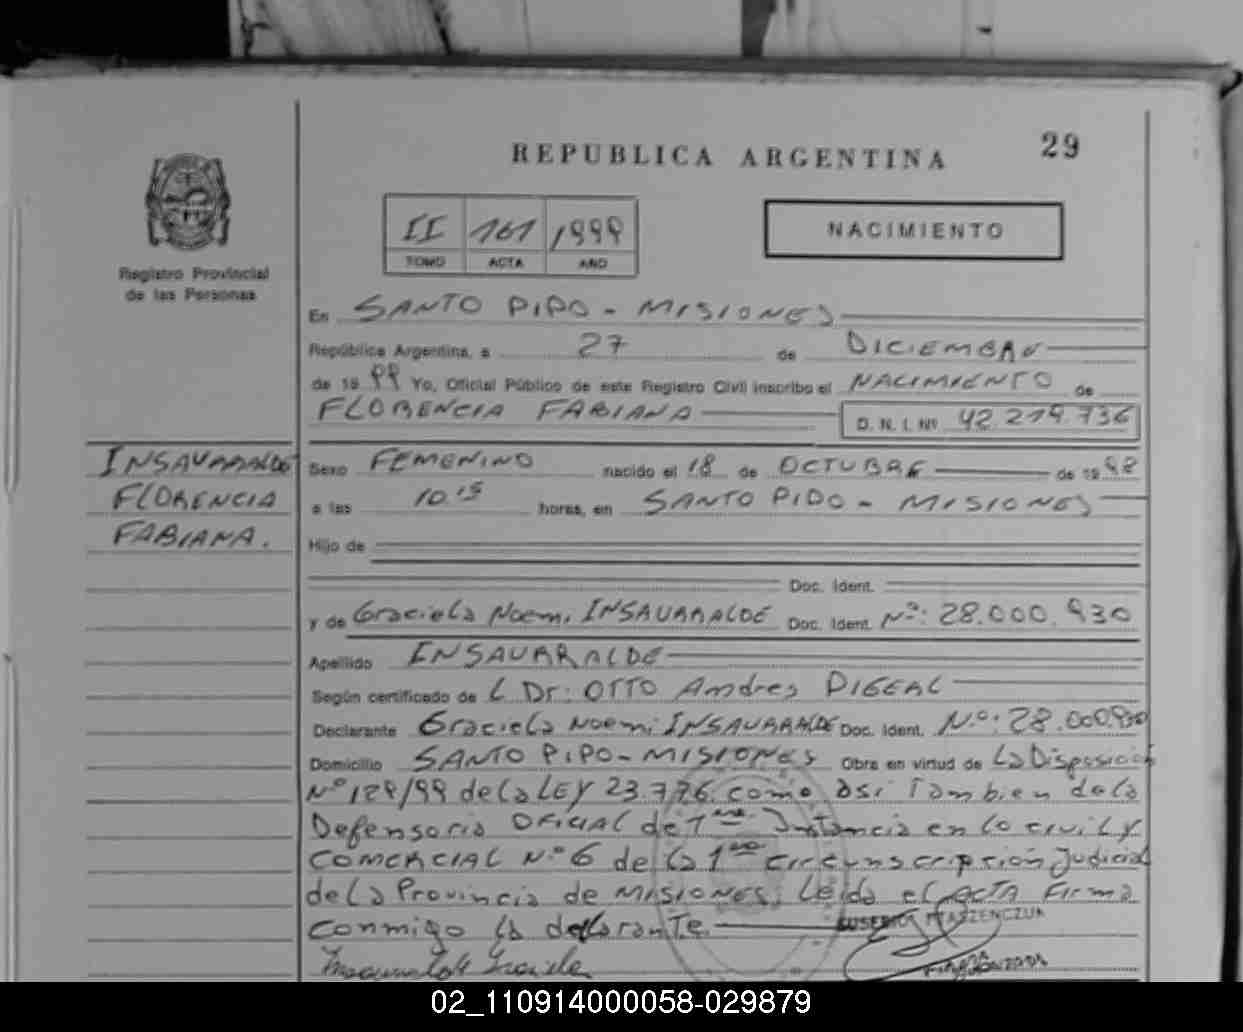 REPUBLICA ARGENTINA
29
II 161 1999
TOMO ACTA AÑO
NACIMIENTO
Registro Provincial
de las Personas
En SANTO PIPO - MISIONES
República Argentina, a 27 de DICIEMBRE
de 19 99 Yo, Oficial Público de este Registro Civil inscribo el NACIMIENTO de
FLORENCIA FABIANA D. N. I. Nº 42.219.736
INSAURRALDE
FLORENCIA
FABIANA.
Sexo FEMENINO nacido el 18 de OCTUBRE de 19 98
a las 10.15 horas, en SANTO PIPO - MISIONES
Hijo de
Doc. Ident.
y de Graciela Noemi INSAURRALDE Doc. Ident. Nº: 28.000.930
Apellido INSAURRALDE
Según certificado de L Dr: OTTO Andres DIGEAL
Declarante Graciela Noemi INSAURRALDE Doc. Ident. N.º: 28.000.930
Domicilio SANTO PIPO - MISIONES Obra en virtud de La Disposición
Nº 129/99 de la LEY 23.776. como asi Tambien de la
Defensoria OFICIAL de 1ra Instancia en lo civil y
COMERCIAL N.º 6 de la 1ra circunscripción Judicial
de la Provincia de MISIONES. Leida el ACTA Firma
conmigo la declarante.
EUSEBIO PTASZENCZUK
02_110914000058-029879